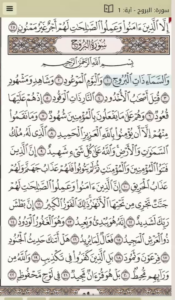 سورة: البروج - آية: 1
إِلَّا ٱلَّذِينَ ءَامَنُوا۟ وَعَمِلُوا۟ ٱلصَّٰلِحَٰتِ لَهُمْ أَجْرٌ غَيْرُ مَمْنُونٍۭ ٢٥
سُورَةُ البُرُوجِ
بِسْمِ ٱللَّهِ ٱلرَّحْمَٰنِ ٱلرَّحِيمِ
وَٱلسَّمَآءِ ذَاتِ ٱلْبُرُوجِ ١ وَٱلْيَوْمِ ٱلْمَوْعُودِ ٢ وَشَاهِدٍ وَمَشْهُودٍ
٣ قُتِلَ أَصْحَٰبُ ٱلْأُخْدُودِ ٤ ٱلنَّارِ ذَاتِ ٱلْوَقُودِ ٥ إِذْ هُمْ عَلَيْهَا قُعُودٌ
٦ وَهُمْ عَلَىٰ مَا يَفْعَلُونَ بِٱلْمُؤْمِنِينَ شُهُودٌ ٧ وَمَا نَقَمُوا۟
مِنْهُمْ إِلَّآ أَن يُؤْمِنُوا۟ بِٱللَّهِ ٱلْعَزِيزِ ٱلْحَمِيدِ ٨ ٱلَّذِى لَهُۥ مُلْكُ
ٱلسَّمَٰوَٰتِ وَٱلْأَرْضِ وَٱللَّهُ عَلَىٰ كُلِّ شَىْءٍ شَهِيدٌ ٩ إِنَّ ٱلَّذِينَ
فَتَنُوا۟ ٱلْمُؤْمِنِينَ وَٱلْمُؤْمِنَٰتِ ثُمَّ لَمْ يَتُوبُوا۟ فَلَهُمْ عَذَابُ جَهَنَّمَ وَلَهُمْ
عَذَابُ ٱلْحَرِيقِ ١٠ إِنَّ ٱلَّذِينَ ءَامَنُوا۟ وَعَمِلُوا۟ ٱلصَّٰلِحَٰتِ لَهُمْ
جَنَّٰتٌ تَجْرِى مِن تَحْتِهَا ٱلْأَنْهَٰرُ ذَٰلِكَ ٱلْفَوْزُ ٱلْكَبِيرُ ١١ إِنَّ بَطْشَ
رَبِّكَ لَشَدِيدٌ ١٢ إِنَّهُۥ هُوَ يُبْدِئُ وَيُعِيدُ ١٣ وَهُوَ ٱلْغَفُورُ ٱلْوَدُودُ ١٤
ذُو ٱلْعَرْشِ ٱلْمَجِيدُ ١٥ فَعَّالٌ لِّمَا يُرِيدُ ١٦ هَلْ أَتَىٰكَ حَدِيثُ ٱلْجُنُودِ
١٧ فِرْعَوْنَ وَثَمُودَ ١٨ بَلِ ٱلَّذِينَ كَفَرُوا۟ فِى تَكْذِيبٍ ١٩ وَٱللَّهُ مِن
وَرَآئِهِم مُّحِيطٌۢ ٢٠ بَلْ هُوَ قُرْءَانٌ مَّجِيدٌ ٢١ فِى لَوْحٍ مَّحْفُوظٍۭ ٢٢